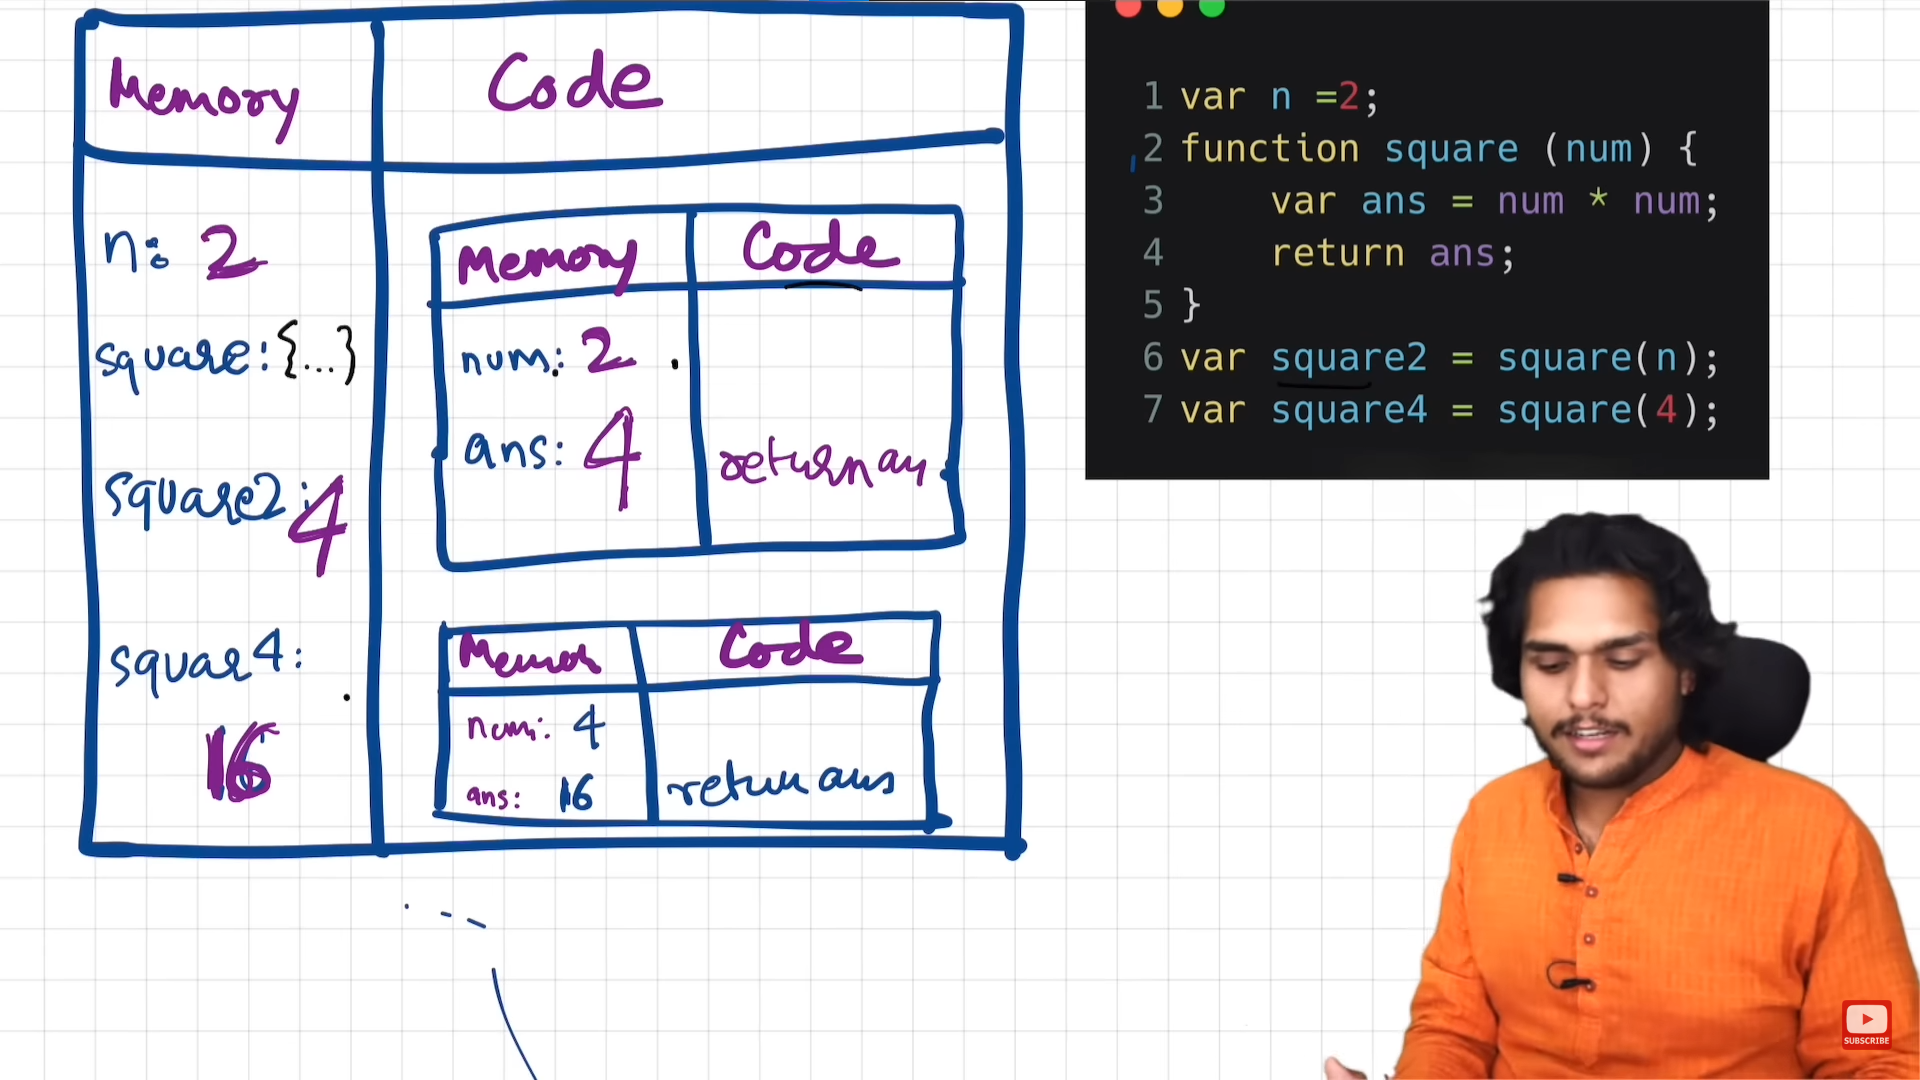 Memory Code
n: 2
square: {...}
square2: 4
squar4:
16
Memory Code
num: 2
ans: 4
return an
Code
num: 4
ans: 16
return ans
1 var n =2;
2 function square (num) {
3 var ans = num * num;
4 return ans;
5 }
6 var square2 = square(n);
7 var square4 = square(4);
SUBSCRIBE